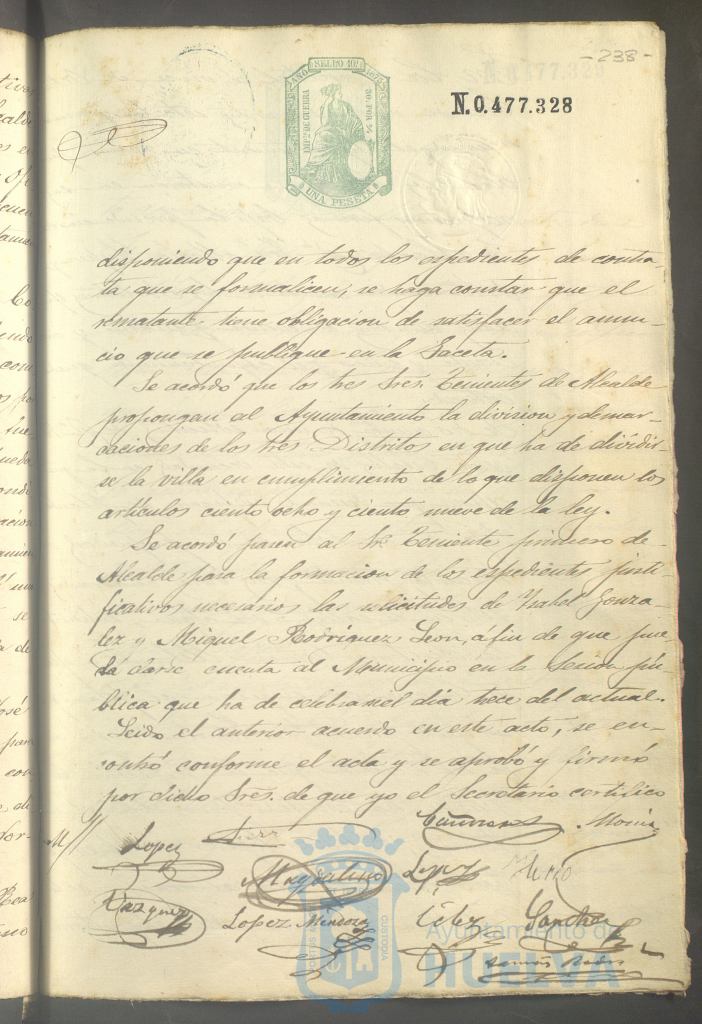 -238-
AÑO SELLO 10º 1876
IMPto DE GUERRA
50 POR %
UNA PESETA
N.0.477.328
disponiendo que en todos los espedientes de contra-
ta que se formalicen, se haga constar que el
rematante tiene obligacion de satisfacer el anun-
cio que se publique en la Gaceta.
Se acordó que los tres Sres. Tenientes de Alcalde
propongan al Ayuntamiento la division y demar-
caciones de los tres Distritos en que ha de dividir-
se la villa en cumplimiento de lo que disponen los
artículos ciento ocho y ciento nueve de la ley.
Se acordó pasen al Sr. Teniente primero de
Alcalde para la formacion de los espedientes justi-
ficativos necesarios las solicitudes de Ysabel Gonza-
lez y Miguel Rodriguez Leon, á fin de que pue-
da darse cuenta al Municipio en la Sesion pú-
blica que ha de celebrar el dia trece del actual.
Leido el anterior acuerdo en este acto, se en-
contró conforme el acta y se aprobó y firmó
por dichos Sres. de que yo el Secretario certifico
Lopez
Magdalino Lopez
Vazquez Lopez Mendoza Sanchez
Ayuntamiento de
HUELVA